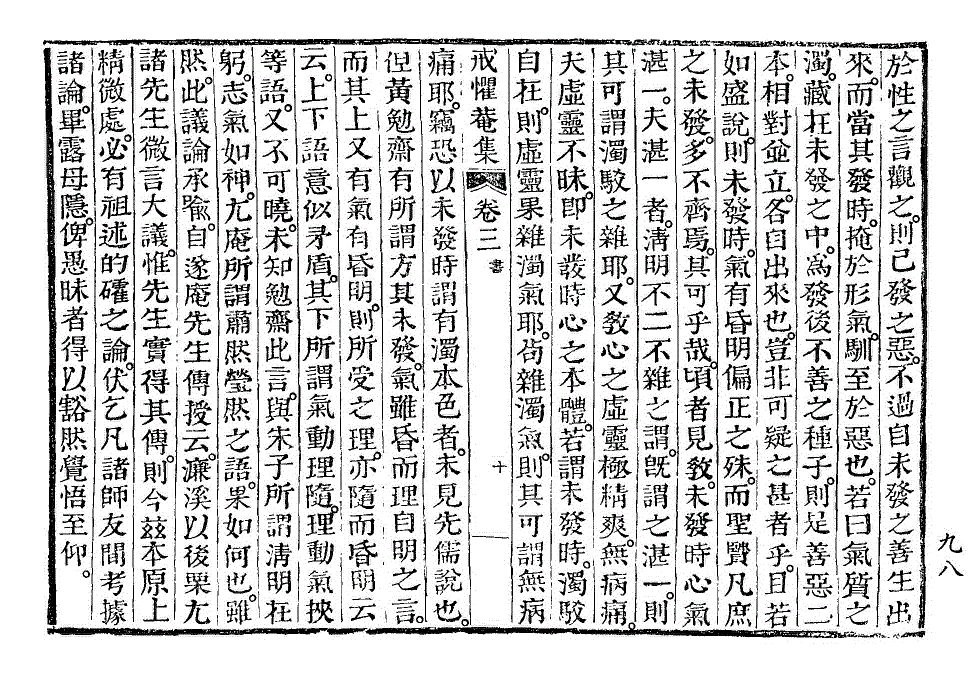 於性之言觀之則已發之惡不過自未發之善生出
來而當其發時掩於形氣馴至於惡也若曰氣質之
濁藏在未發之中爲發後不善之種子則是善惡二
本相對並立各自出來也豈非可疑之甚者乎且若
如盛說則未發時氣有昏明偏正之殊而聖贒凡庶
之未發多不齊焉其可乎哉頃者見敎未發時心氣
湛一夫湛一者淸明不二不雜之謂旣謂之湛一則
其可謂濁駁之雜耶又敎心之虛靈極精爽無病痛
夫虛靈不昧卽未發時心之本體若謂未發時濁駁
自在則虛靈果雜濁氣耶苟雜濁氣則其可謂無病
戒懼菴集 卷三 書 十
痛耶竊恐以未發時謂有濁本色者未見先儒說也
但黃勉齋有所謂方其未發氣雖昏而理自明之言
而其上又有氣有昏明則所受之理亦隨而昏明云
云上下語意似矛盾其下所謂氣動理隨理動氣挾
等語又不可曉未知勉齋此言與朱子所謂淸明在
躬志氣如神尤庵所謂肅然瑩然之語果如何也雖
然此議論承喩自遂庵先生傳授云濂溪以後栗尤
諸先生微言大議惟先生實得其傳則今玆本原上
精微處必有祖述的確之論伏乞凡諸師友間考據
諸論畢露毋隱俾愚昧者得以豁然覺悟至仰
九八